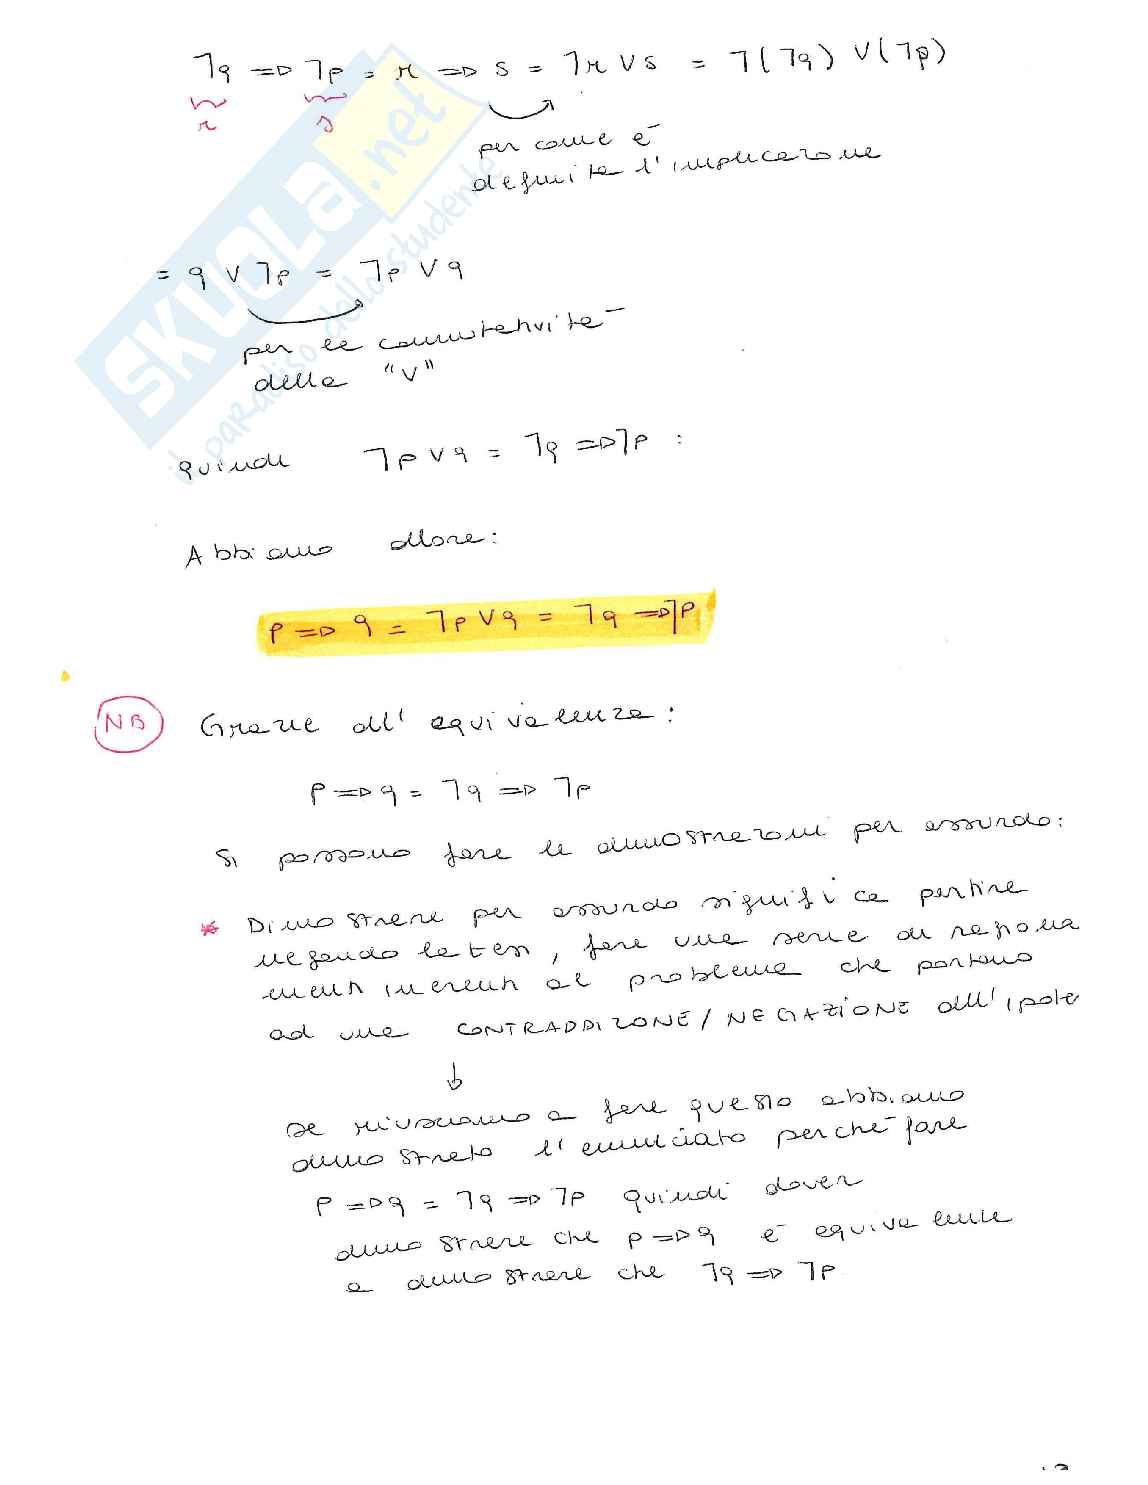 ¬q => ¬p = r => s = ¬r ∨ s = ¬(¬q) ∨ (¬p)
r s
per come è
definita l'implicazione
= q ∨ ¬p = ¬p ∨ q
per la commutatività
della "∨"
quindi ¬p ∨ q = ¬q => ¬p :
Abbiamo allora:
p => q = ¬p ∨ q = ¬q => ¬p
NB Grazie all'equivalenza:
p => q = ¬q => ¬p
si possono fare le dimostrazioni per assurdo:
* Dimostrare per assurdo significa partire
negando la tesi, fare una serie di ragiona
menti inerenti al problema che portano
ad una CONTRADDIZIONE/NEGAZIONE all'ipote
↓
se riusciamo a fare questo abbiamo
dimostrato l'enunciato perchè fare
p => q = ¬q => ¬p quindi dover
dimostrare che p => q è equivalente
a dimostrare che ¬q => ¬p
SKUOLA.net
il paradiso dello studente